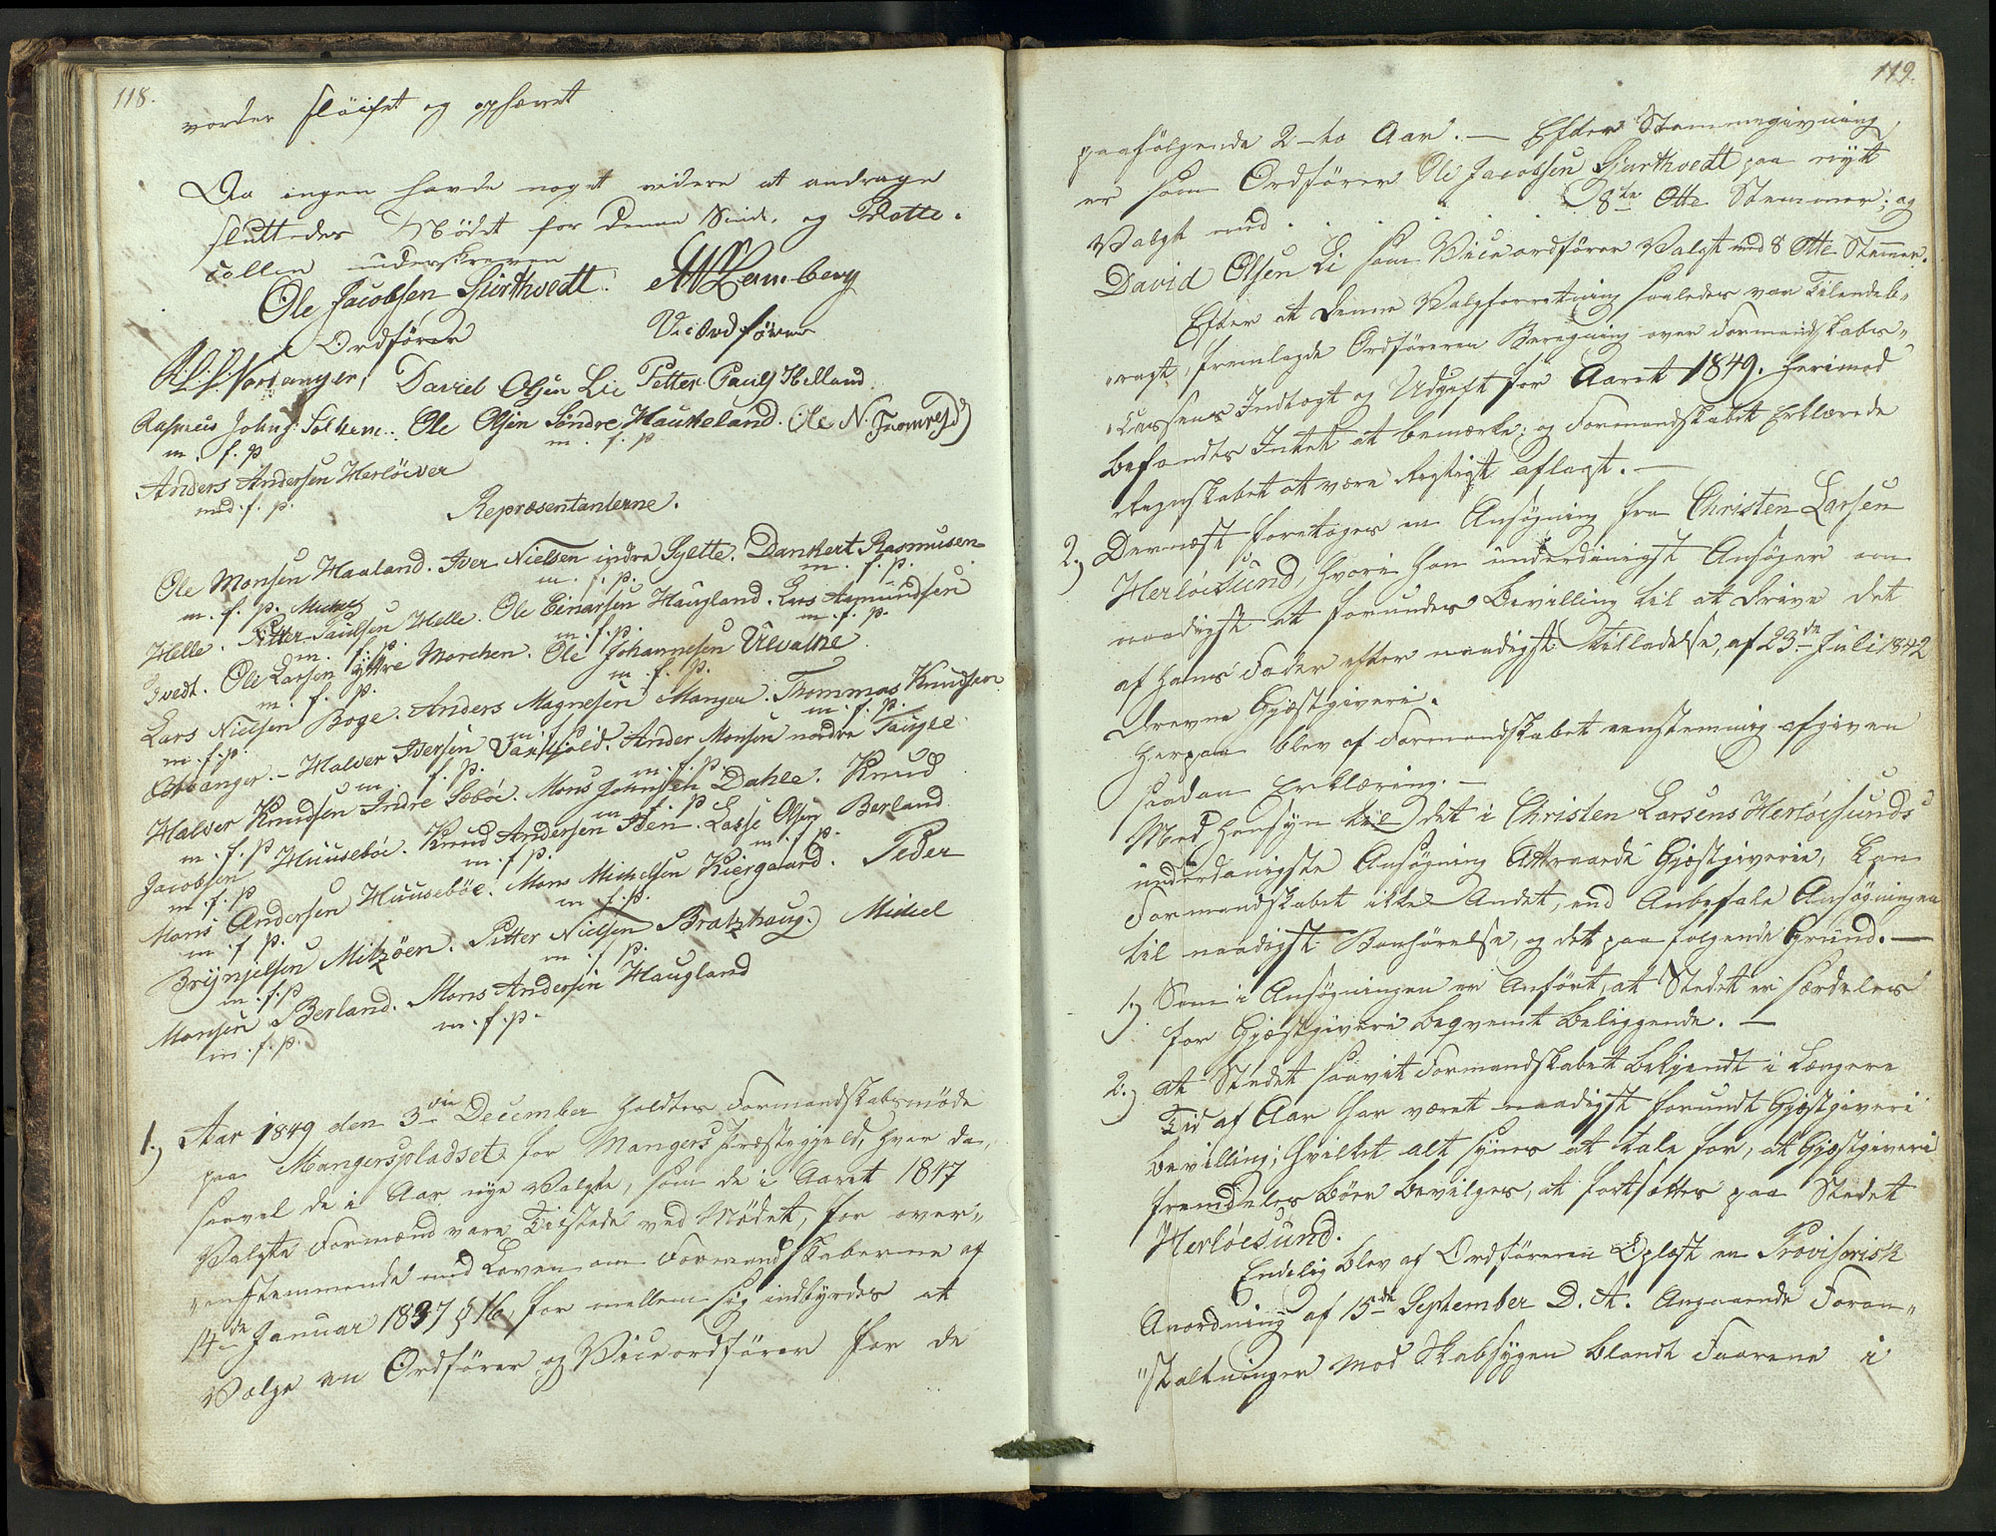 118.
vorder sløifet og ophævet
Da ingen havde noget videre at andrage
sluttedes Mødet for denne Sinde, og Protto-
collen underskreven
Ole Jacobsen Sjurthvedt. Lamberg
Ordfører Viceordfører
Norvanger, David Olsen Lie Petter Pauls Helland
Rasmus Johns: Solhem. Ole Olsen Søndre Haukeland. Ole N.
m. f. p m. f. p
Anders Andersen Herlöever
med. f. p.
Repræsentanterne.
Ole Monsen Haaland. Iver Nielsen indre Sylte. Dankert Rasmusen
m. f. p. m. f. p. m. f. p.
Helle. Petter Paulsen Helle. Ole Einarsen Haugland. Lars Asmundsen
m. f. p. m. f. p. m. f. p.
Tvedt. Ole Larsen yttre Morchen. Ole Johannesen Ulvatne
m. f. p. m. f. p.
Lars Nielsen Boge. Anders Magnesen Manger. Thommas Knudsen
m. f. p. m. f. p.
Halver Iversen Anders Monsen nordre Taugle
m. f. p. m. f. p.
Halver Knudsen Indre Sæböe. Mons Johnsen Dahle. Knud
m. f. p m. f. p
Jacobsen Huusebøe. Knud Andersen Steen. Lasse Olsen Berland
m. f. p m. f. p. m. f. p.
Mons Andersen Huusebøe. Mons Michelsen Kiergaard. Peder
m. f. p. m. f. p.
Brynjelsen Mitzöen. Petter Nielsen Bratzhaug. Mickel
m. f. p m. f. p.
Monsen Berland. Mons Andersen Haugland
m. f. p. m. f. p.
1.) Aar 1849 den 3die December holdtes Formandskabsmøde
paa Mangerspladset for Mangers Præstegjeld, hvor da,
saavel de i Aar nye Valgte, som de i Aaret 1847
Valgte Formænd vare Tilstede ved Mødet, for over-
"ensstemmende med Loven om Formandskaberne af
14de Januar 1837 § 16, for mellem sig indbyrdes at
Vælge en Ordfører og Viceordfører for de
119.
paafølgende 2-to Aar. — Efter Stemmegivning
er som Ordfører Ole Jacobsen Sjurthvedt paa nyt
Valgt med . . . . . 8te Otte Stemmer; og
David Olsen Li som Viceordfører Valgt med 8 Otte Stemmer.
Efter at denne Valgforretning saaledes var Tilendeb-
"ragt, fremlagde Ordføreren Beregning over Formandskabs-
"Cassens Indtægt og Udgift for Aaret 1849. Herimod
befandtes Intet at bemærke; og Formandskabet Erklærede
Regnskabet at være Rigtigt aflagt. —
2.) Dernæst foretoges en Ansøgning fra Christen Larsen
Herlöesund, hvori han underdanigst Ansøger om
naadigst at forundes Bevilling til at drive det
af hans Fader efter naadigst Tilladelse, af 23de Juli 1842
drevne Gjæstgiveri.
Herpaa blev af Formandskabet eenstemmig afgiven
saadan Erklæring. —
Med Hensyn til det i Christen Larsens Herlöesunds
underdanigste Ansøgning Attraaede Gjæstgiverie, kan
Formandskabet ikke Andet, end Anbefale Ansøgningen
til naadigst Bønhørelse, og det paa følgende Grund. —
1.) Som i Ansøgningen er Anført, at Stedet er særdeles
for Gjæstgiveri beqvemt beliggende. —
2.) at Stedet saavit Formandskabet bekjendt i længere
Tid af Aar har været naadigst forundt Gjæstgiveri
bevilling; hvilket alt synes at tale for, at Gjæstgiveri
fremdeles bör bevilges, at fortsættes paa Stedet
Herlöesund.
Endelig blev af Ordføreren Oplæst en Provisorisk
Anordning af 15de September D. A. Angaaende Foran-
"staltninger mod Skabsygen blandt Faarene i